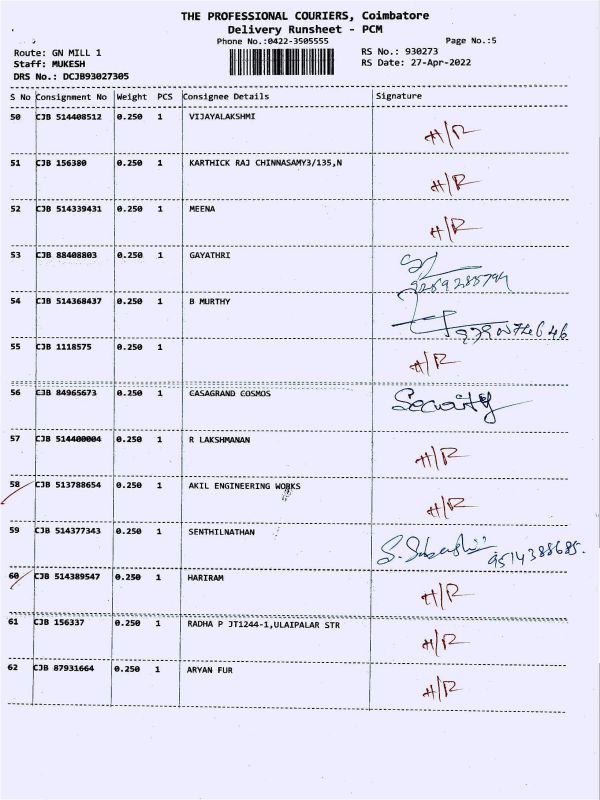 THE PROFESSIONAL COURIERS, Coimbatore
Delivery Runsheet - PCM
Phone No.:0422-3505555 Page No.:5
Route: GN MILL 1 RS No.: 930273
Staff: MUKESH RS Date: 27-Apr-2022
DRS No.: DCJB93027305
S No Consignment No Weight PCS Consignee Details Signature
50 CJB 514408512 0.250 1 VIJAYALAKSHMI H/R
51 CJB 156380 0.250 1 KARTHICK RAJ CHINNASAMY3/135,N H/R
52 CJB 514339431 0.250 1 MEENA H/R
53 CJB 88408803 0.250 1 GAYATHRI
54 CJB 514368437 0.250 1 B MURTHY
55 CJB 1118575 0.250 1 H/R
56 CJB 84965673 0.250 1 CASAGRAND COSMOS Security
57 CJB 514400004 0.250 1 R LAKSHMANAN H/R
58 CJB 513788654 0.250 1 AKIL ENGINEERING WORKS H/R
59 CJB 514377343 0.250 1 SENTHILNATHAN 9514388685.
60 CJB 514389547 0.250 1 HARIRAM H/R
61 CJB 156337 0.250 1 RADHA P JT1244-1,ULAIPALAR STR H/R
62 CJB 87931664 0.250 1 ARYAN FUR H/R